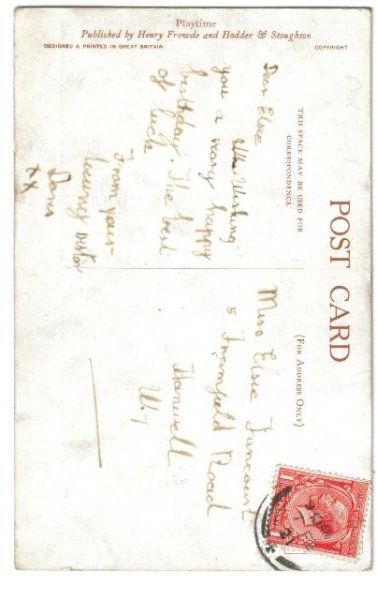 Playtime
Published by Henry Frowde and Hodder & Stoughton
DESIGNED & PRINTED IN GREAT BRITAIN
COPYRIGHT
POST CARD
THIS SPACE MAY BE USED FOR
CORRESPONDENCE
(FOR ADDRESS ONLY)
Dear Elsie
Wishing
you a very happy
birthday. The best
of luck
From your
loving sister
Dora
xx
Miss Elsie
5 Road
Hanwell
W.7